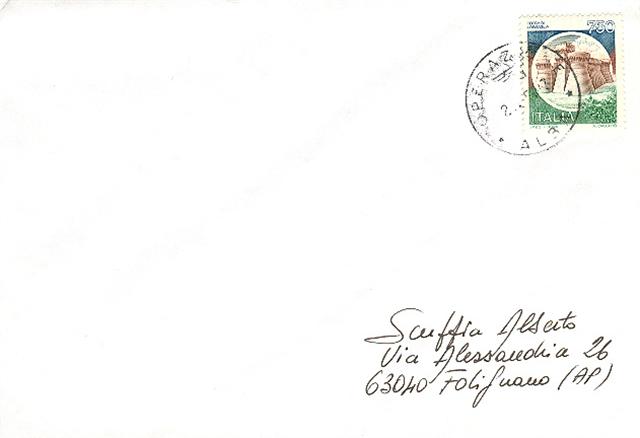 750
ITALIA
OPERAZ
2
ALB
Scuffia Alberto
Via Alessandria 26
63040 Folignano (AP)